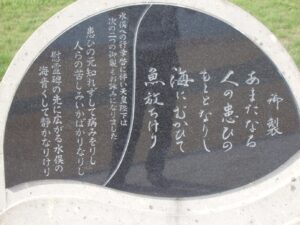 御製
あまたなる
人の患ひの
もととなりし
海にむかひて
魚放ちけり
水俣への行幸啓に伴い天皇陛下は
次の二つの御製もお詠みになりました
患ひの元知れずして病みをりし
人らの苦しみいかばかりなりし
慰霊碑の先に広がる水俣の
海青くして静かなりけり